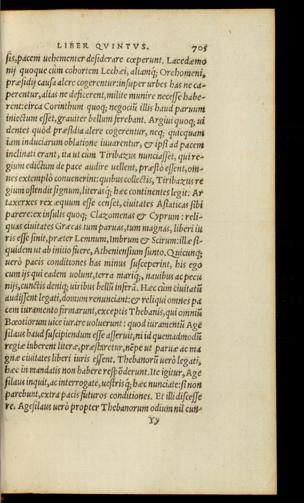 LIBER QVINTVS. 705
sis, pacem uehementer desiderare cœperunt. Lacedæmo
nij quoque cùm cohortem Lechæi, aliamq; Orchomeni,
præsidij causa alere cogerentur: insuper urbes has ne ca-
perentur, alias ne deficerent, milite munire necesse habe-
rent: circa Corinthum quoq; negociũ illis haud paruum
iniectum esset, grauiter bellum ferebant. Argiui quoq; ui
dentes quòd præsidia alere cogerentur, neq; quicquam
iam induciarum oblatione iuuarentur, & ipsi ad pacem
inclinati erant, ita ut cùm Tiribazus nunciasset, qui re-
gium edictum de pace audire uellent, præstò essent, om-
nes extemplò conuenerint: quibus collectis, Tiribazus re
gium ostendit signum, literasq; hæc continentes legit: Ar
taxerxes rex æquum esse censet, ciuitates Asiaticas sibi
parere: ex insulis quoq; Clazomenas & Cyprum: reli-
quas ciuitates Græcas tum paruas, tum magnas, liberi iu
ris esse sinit, præter Lemnum, Imbrum & Scirum: illæ si-
quidem ut ab initio fuere, Atheniensium sunto. Quicunq;
uerò pacis conditiones has minus susceperint, his ego
cum ijs qui eadem uolunt, terra mariq;, nauibus ac pecu
nijs, cunctis deniq; uiribus bellũ inferã. Hæc cùm ciuitatũ
audissent legati, domum renunciant: & reliqui omnes pa
cem iuramento firmarunt, exceptis Thebanis, qui omniũ
Bœotiorum uice iurare uoluerunt: quod iuramentũ Age
silaus haud suscipiendum esse asseruit, ni id quemadmodũ
regiæ iuberent literæ, præstaretur, nẽpe ut paruæ ac ma
gnæ ciuitates liberi iuris essent. Thebanorũ uerò legati,
hæc in mandatis non habere respõderunt. Ite igitur, Age
silaus inquit, ac interrogate, uestrisq́; hæc nunciate: si non
parebunt, extra pacis futuros conditiones. Et illi discesse
re. Agesilaus uerò propter Thebanorum odium nil cun-
Yy